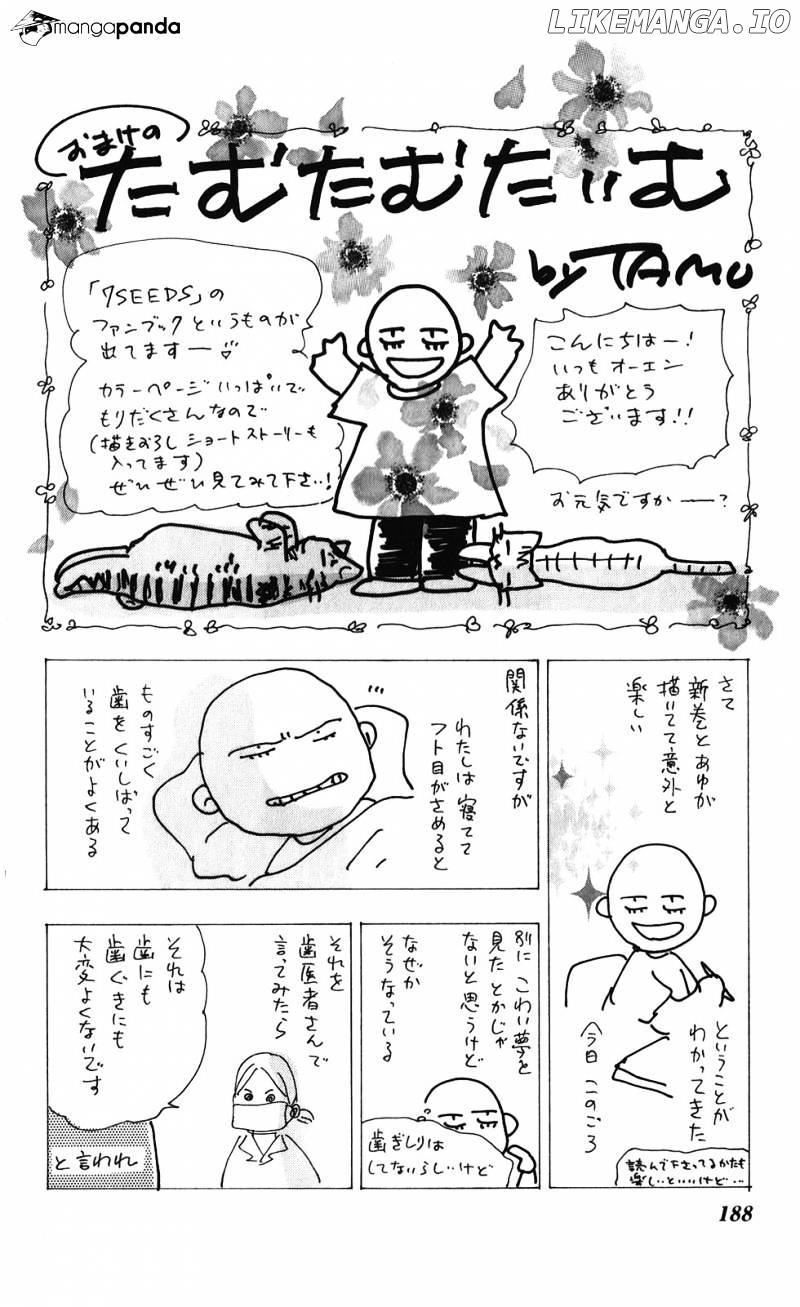 mangapanda
LIKEMANGA.IO
おまけの
たむたむたいむ
by TAMU
こんにちはー!
いつも オーエン
ありがとう
ございます!!
お元気ですかー?
「7SEEDS」の
ファンブックというものが
出てますー♡
カラーページいっぱいで
もりだくさんなので
(描きおろし ショートストーリーも
入ってます)
ぜひぜひ見てみて下さい!
さて
新巻とあゆが
描いてて意外と
楽しい
ということが
わかってきた
今日このごろ
読んで下さってるかたも
楽しいといいけど…
関係ないですが
わたしは寝てて
フト目がさめると
ものすごく
歯をくいしばって
いることがよくある
別に こわい夢を
見たとかじゃ
ないと思うけど
なぜか
そうなっている
歯ぎしりは
してないらしいけど
それを
歯医者さんで
言ってみたら
それは
歯にも
歯ぐきにも
大変よくないです
と言われ
188